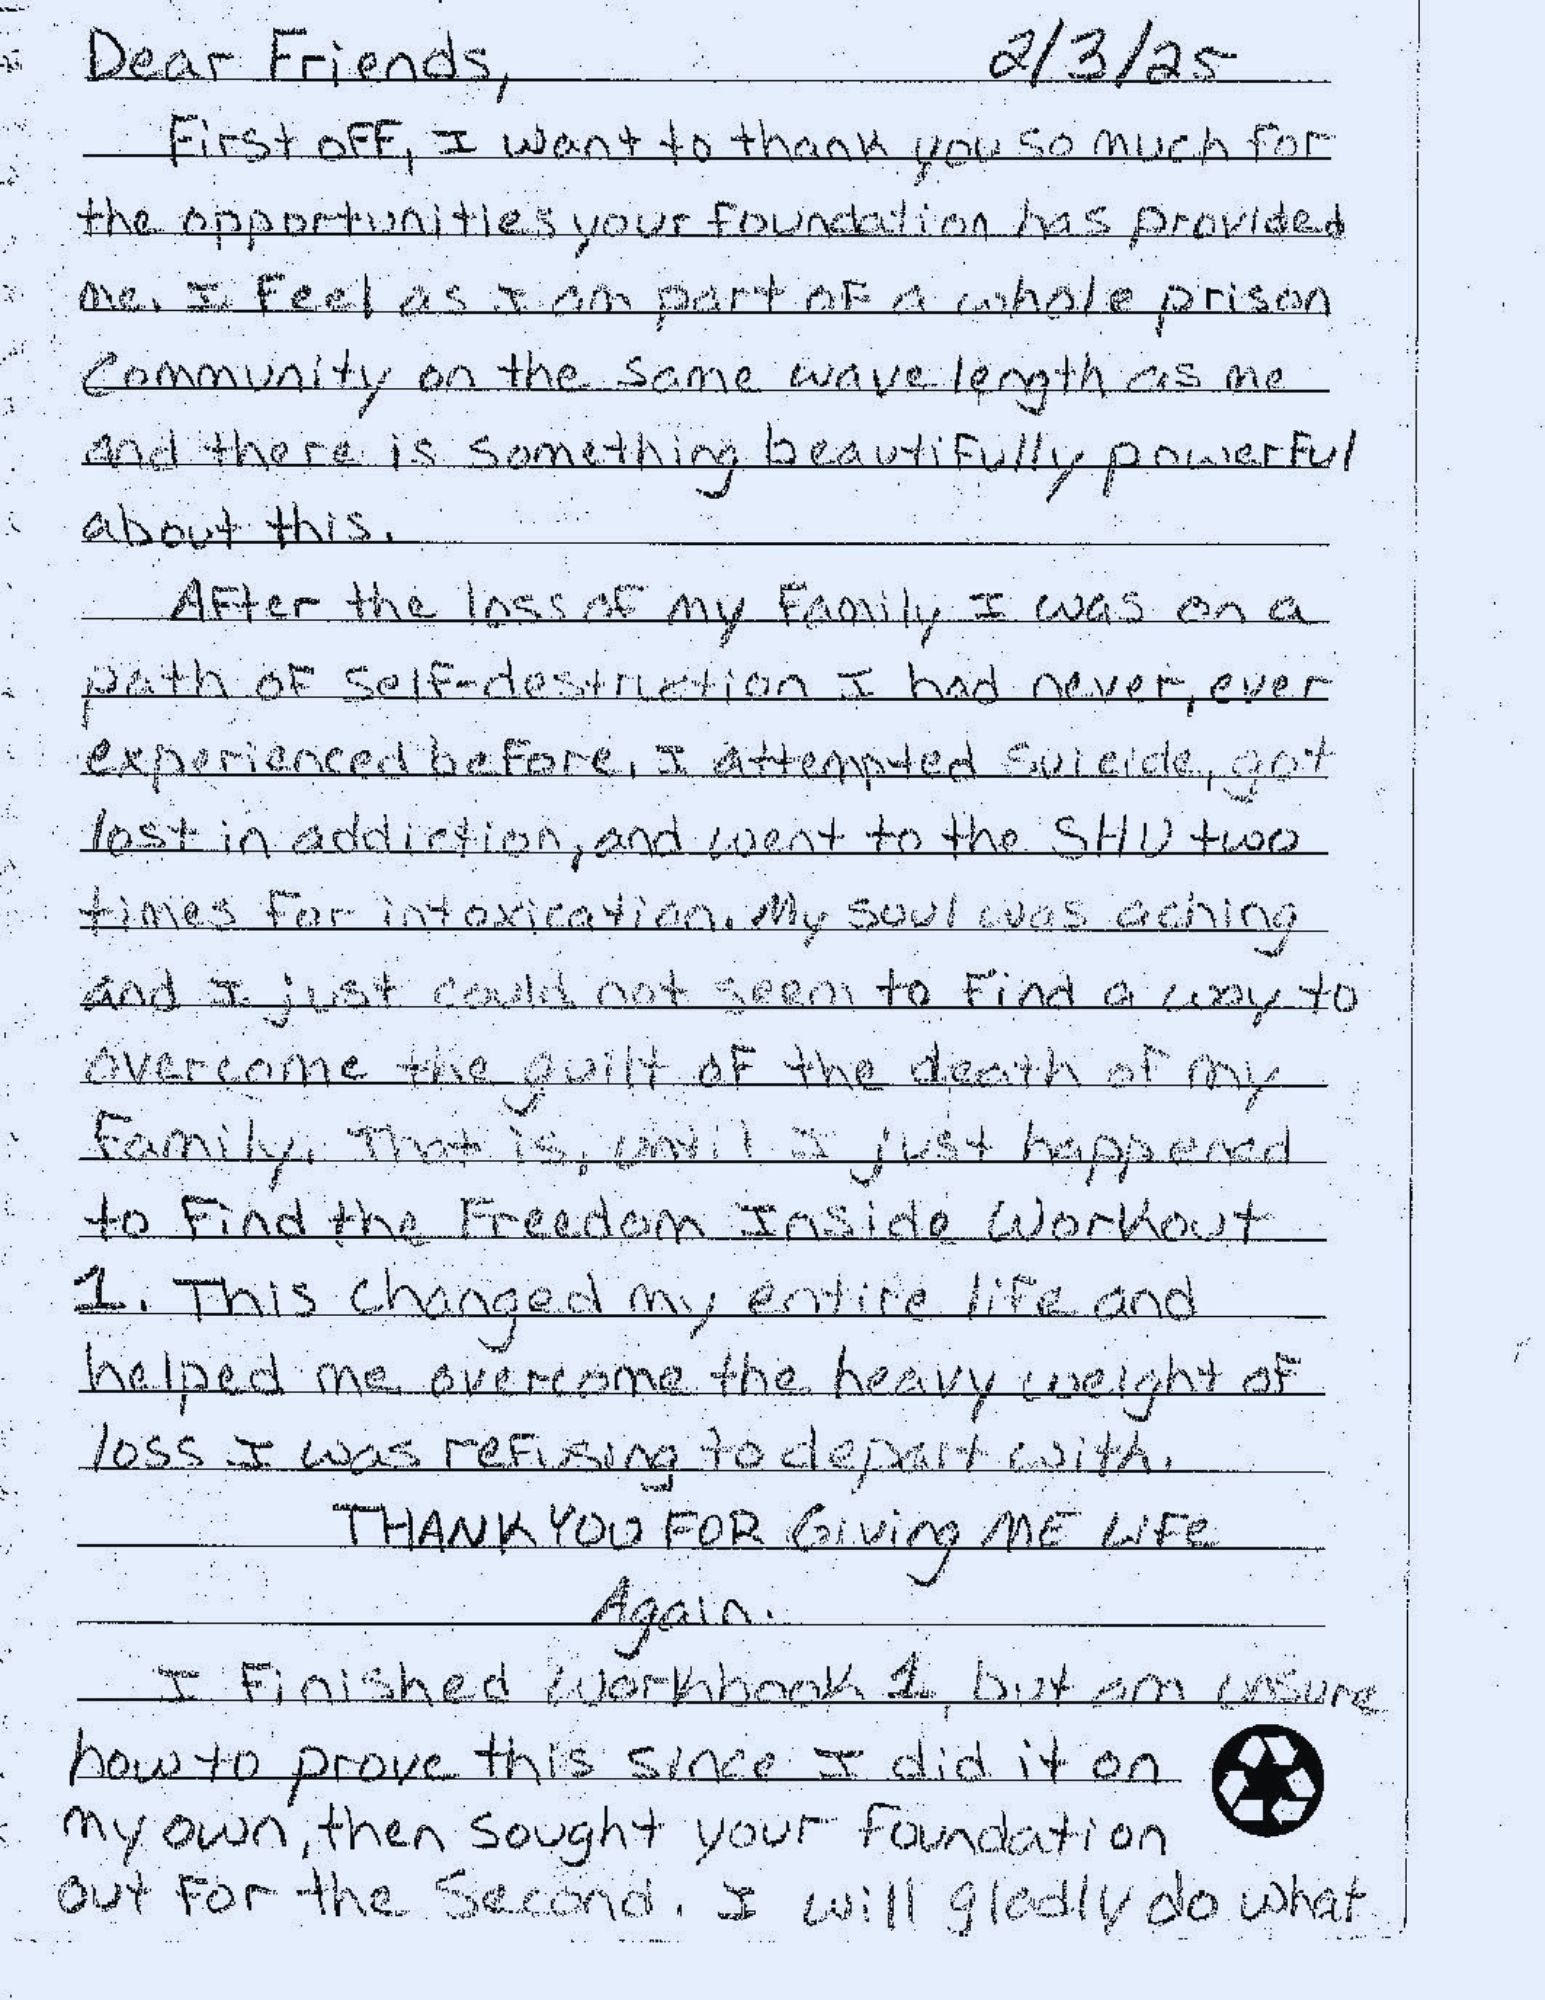 Dear Friends, 2/3/25
First off, I want to thank you so much for
the opportunities your foundation has provided
me. I feel as I am part of a whole prison
Community on the same wave length as me
and there is something beautifully powerful
about this.
After the loss of my family I was on a
path of self-destruction I had never, ever
experienced before. I attempted suicide, got
lost in addiction, and went to the SHU two
times for intoxication. My soul was aching
and I just could not seem to find a way to
overcome the guilt of the death of my
family. That is, until I just happened
to find the Freedom Inside Workout
1. This changed my entire life and
helped me overcome the heavy weight of
loss I was refusing to depart with.
THANK YOU FOR Giving ME LIFE
Again.
I finished workbook 1, but am unsure
how to prove this since I did it on
my own, then sought your foundation
out for the second. I will gladly do what